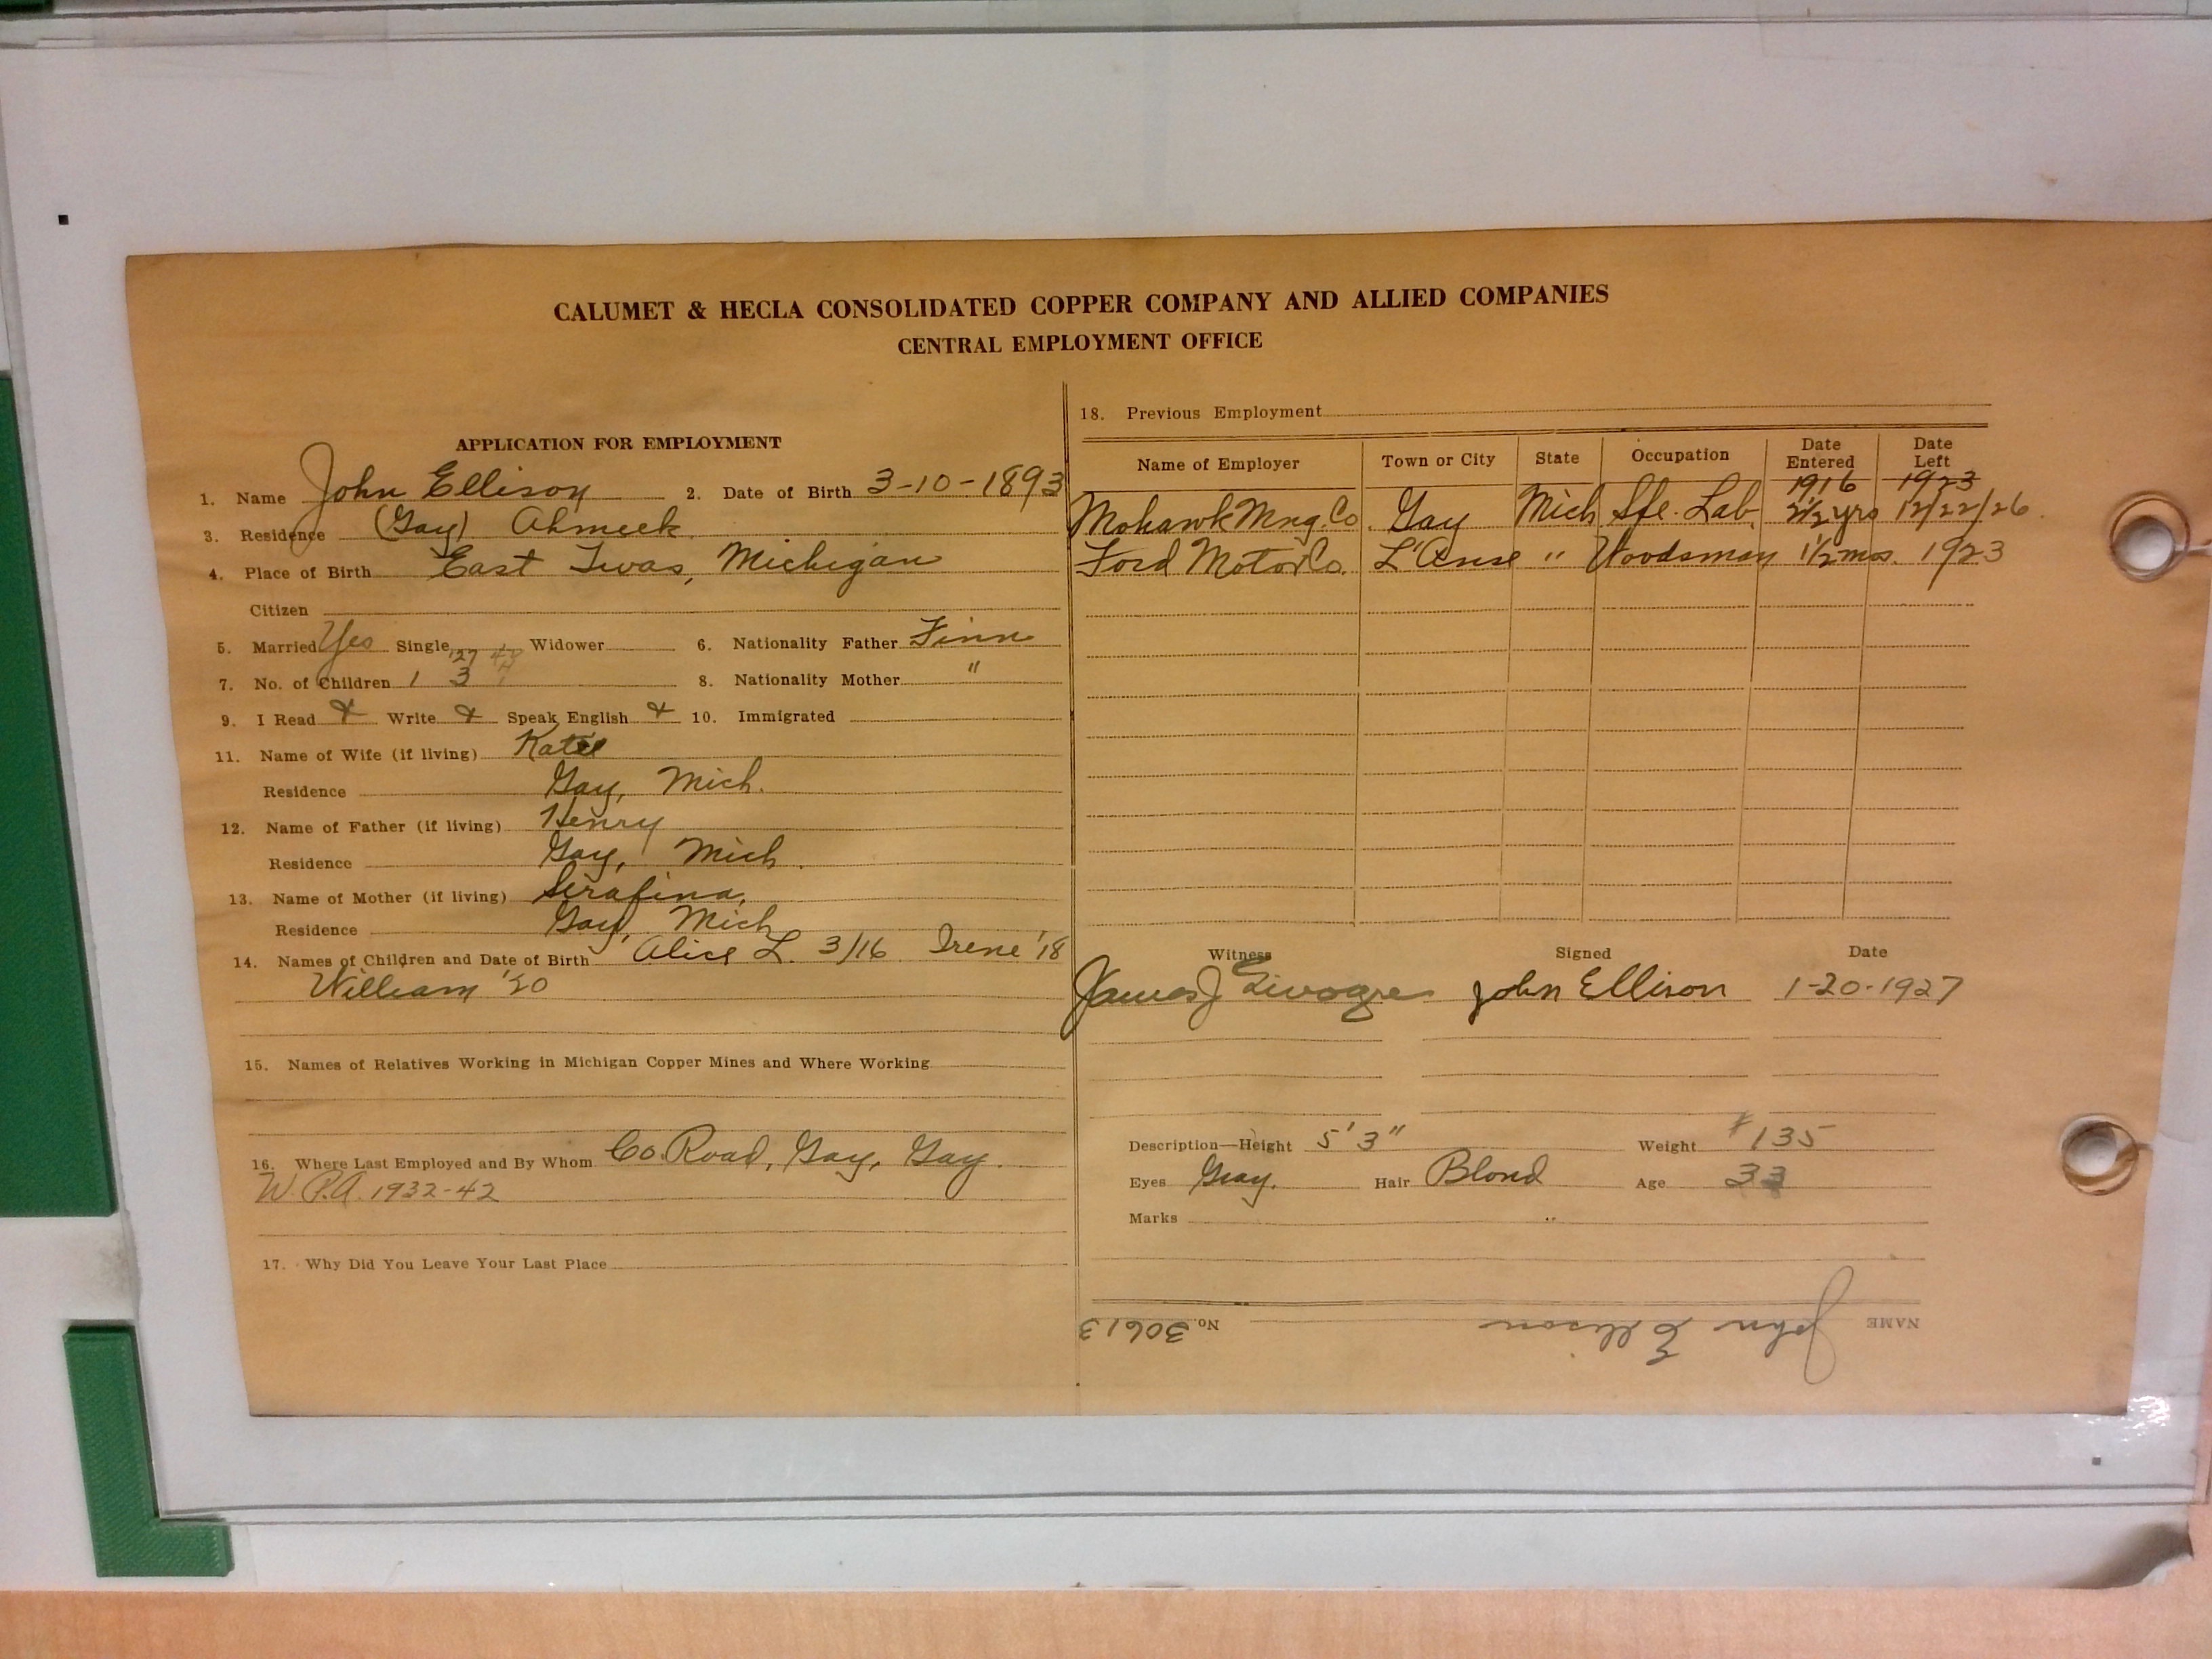 CALUMET & HECLA CONSOLIDATED COPPER COMPANY AND ALLIED COMPANIES
CENTRAL EMPLOYMENT OFFICE
APPLICATION FOR EMPLOYMENT
1. Name John Ellison 2. Date of Birth 3-10-1893
3. Residence (Gay) Ahmeek
4. Place of Birth East Twas, Michigan
Citizen
5. Married Yes Single Widower 6. Nationality Father Finn
'27
7. No. of Children 1 3 8. Nationality Mother "
9. I Read x Write x Speak English x 10. Immigrated
11. Name of Wife (if living) Kate
Residence Gay, Mich.
12. Name of Father (if living) Henry
Residence Gay, Mich.
13. Name of Mother (if living) Serafina,
Residence Gay, Mich
14. Names of Children and Date of Birth Alice L. 3/16 Irene '18
William '20
15. Names of Relatives Working in Michigan Copper Mines and Where Working
16. Where Last Employed and By Whom Co. Road, Gay, Gay.
W.P.A. 1932-42
17. Why Did You Leave Your Last Place
18. Previous Employment
Name of Employer Town or City State Occupation Date Entered Date Left
1916 1923
Mohawk Mng. Co. Gay Mich Sfe. Lab. 2 1/2 yrs 12/22/26
Ford Motor Co. L'Anse " Woodsman 1 1/2 mos. 1923
Witness Signed Date
James J John Ellison 1-20-1927
Description—Height 5' 3" Weight # 135
Eyes Gray. Hair Blond Age 33
Marks
NAME John Ellison No. 30613